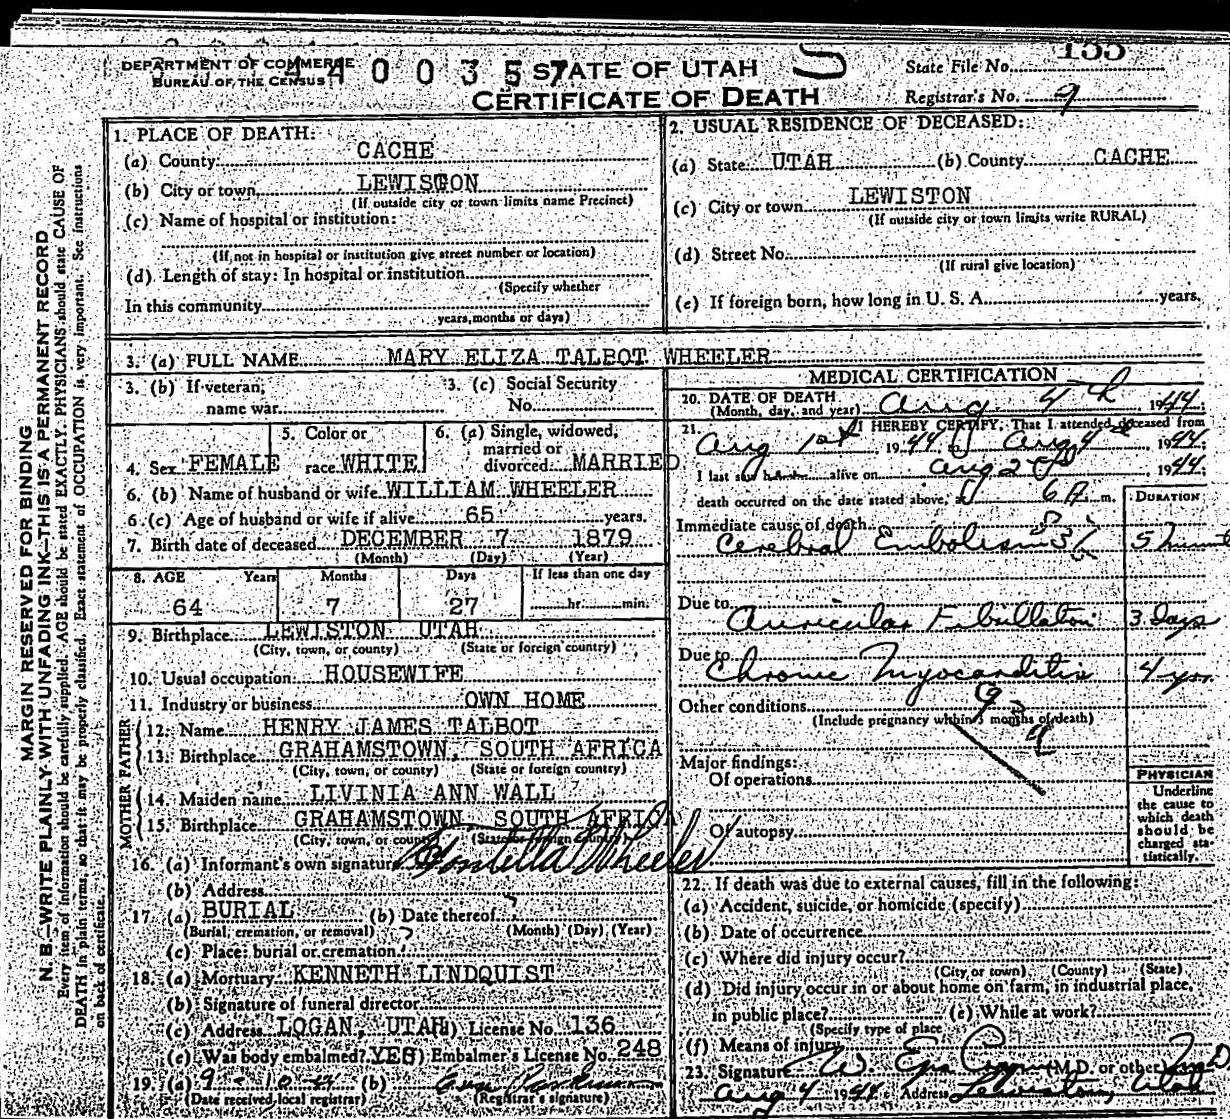 DEPARTMENT OF COMMERCE
BUREAU OF THE CENSUS
4400357
STATE OF UTAH
CERTIFICATE OF DEATH
State File No. 155
Registrar's No. 9
MARGIN RESERVED FOR BINDING
N. B.—WRITE PLAINLY WITH UNFADING INK—THIS IS A PERMANENT RECORD
Every item of information should be carefully supplied. AGE should be stated EXACTLY. PHYSICIANS should state CAUSE OF
DEATH in plain terms, so that it may be properly classified. Exact statement of OCCUPATION is very important. See instructions
on back of certificate.
1. PLACE OF DEATH:
(a) County CACHE
(b) City or town LEWISTON
(If outside city or town limits name Precinct)
(c) Name of hospital or institution:
(If not in hospital or institution give street number or location)
(d) Length of stay: In hospital or institution
(Specify whether
In this community
years, months or days)
2. USUAL RESIDENCE OF DECEASED:
(a) State UTAH (b) County CACHE
(c) City or town LEWISTON
(If outside city or town limits write RURAL)
(d) Street No.
(If rural give location)
(e) If foreign born, how long in U. S. A. years.
3. (a) FULL NAME MARY ELIZA TALBOT WHEELER
3. (b) If veteran, name war
3. (c) Social Security No.
4. Sex FEMALE
5. Color or race WHITE
6. (a) Single, widowed, married or divorced MARRIED
6. (b) Name of husband or wife WILLIAM WHEELER
6 (c) Age of husband or wife if alive 65 years.
7. Birth date of deceased DECEMBER 7 1879
(Month) (Day) (Year)
8. AGE Years Months Days If less than one day
64 7 27 hr. min.
9. Birthplace LEWISTON UTAH
(City, town, or county) (State or foreign country)
10. Usual occupation HOUSEWIFE
11. Industry or business OWN HOME
FATHER
12. Name HENRY JAMES TALBOT
13. Birthplace GRAHAMSTOWN, SOUTH AFRICA
(City, town, or county) (State or foreign country)
MOTHER
14. Maiden name LIVINIA ANN WALL
15. Birthplace GRAHAMSTOWN SOUTH AFRICA
(City, town, or county) (State or foreign country)
16. (a) Informant's own signature Wheeler
(b) Address
17. (a) BURIAL (b) Date thereof
(Burial, cremation, or removal) (Month) (Day) (Year)
(c) Place: burial or cremation
18. (a) Mortuary KENNETH LINDQUIST
(b) Signature of funeral director
(c) Address LOGAN, UTAH License No. 136
(e) Was body embalmed? YES Embalmer's License No. 248
19. (a) 9-10-44 (b)
(Date received local registrar) (Registrar's signature)
MEDICAL CERTIFICATION
20. DATE OF DEATH
(Month, day, and year) Aug 4th 1944
21. I HEREBY CERTIFY, That I attended deceased from
Aug 1st, 1944 Aug 4 1944
I last saw h alive on Aug 2 1944
death occurred on the date stated above, 6 A. m.
DURATION
Immediate cause of death
Cerebral Embolism 83 5 minute
Due to
Auricular Fibrillation 3 Days
Due to
Chronic Myocarditis 4 yrs.
Other conditions
(Include pregnancy within 3 months of death)
Major findings:
Of operations
Of autopsy
PHYSICIAN
Underline
the cause to
which death
should be
charged sta-
tistically.
22. If death was due to external causes, fill in the following:
(a) Accident, suicide, or homicide (specify)
(b) Date of occurrence
(c) Where did injury occur?
(City or town) (County) (State)
(d) Did injury occur in or about home on farm, in industrial place,
in public place? (e) While at work?
(Specify type of place
(f) Means of injury
23. Signature W. (M.D. or other)
Aug 4 1944 Address Lewiston, Utah